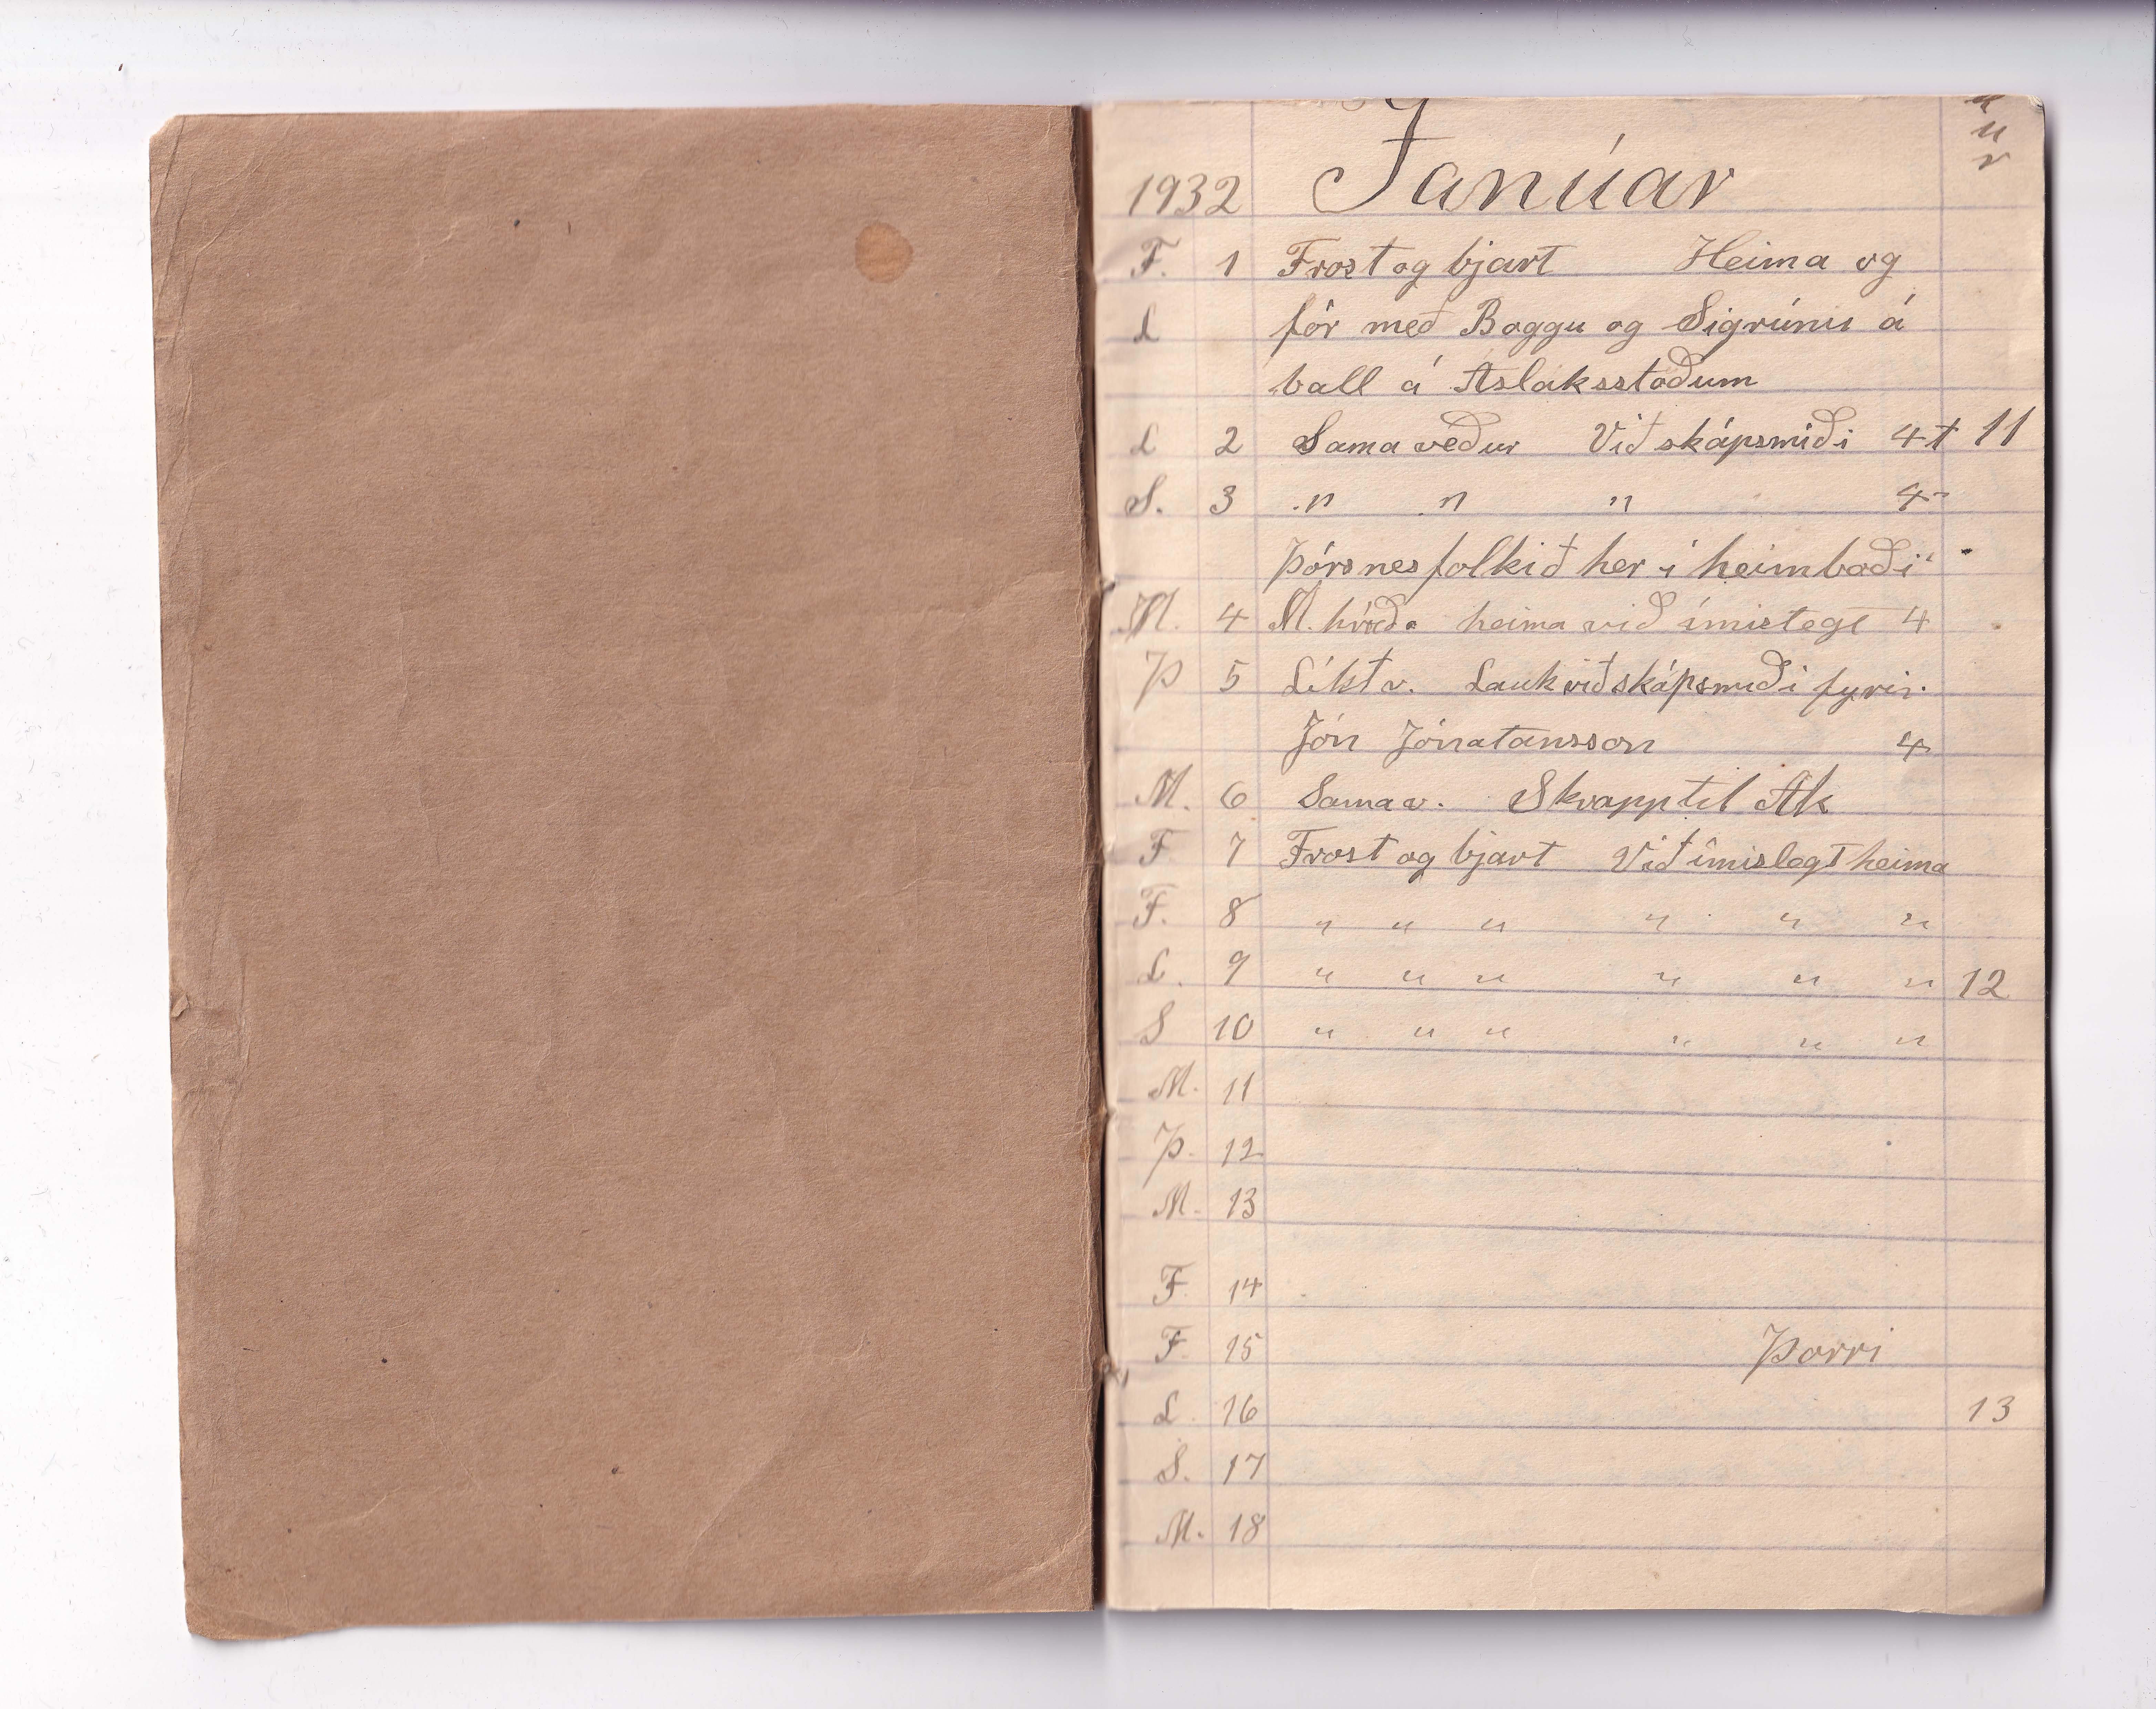 u
r
1932 Janúar
F. 1 Frost og bjart Heima og
L fór með Boggu og Sigrúnu á
ball á Aslaksstoðum
L 2 Sama veður Við skápsmiði 4t 11
S. 3 " " " 4-
Þórsnesfolkið her í heimboði
M. 4 M. heima við ímislegt 4
Þ 5 Líkt v. Lauk við skápsmiði fyrir
Jón Jónatansson 4
M. 6 Sama v. Skrapp til Ak
F 7 Frost og bjart Við ímislegt heima
F. 8 " " " " " "
L. 9 " " " " " " 12
S 10 " " " " " "
M. 11
Þ. 12
M. 13
F 14
F. 15 Þorri
L. 16 13
S. 17
M. 18